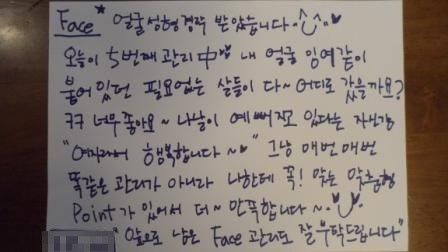 Face* 얼굴성형경락 받았습니다.^^♥
오늘이 5번째 관리中인 내 얼굴 잉여같이
붙어 있던 필요없는 살들이 다~ 어디로 갔을까요?
ㅋㅋ 너무 좋아요~ 나날이 예뻐지고 있다는 자신감
"여자라서 행복합니다~♥" 그냥 매번매번
똑같은 관리가 아니라 나한테 꼭! 맞는 맞춤형
Point가 있어서 더~ 만족합니다~♥
"앞으로 남은 Face 관리도 잘 부탁드립니다"